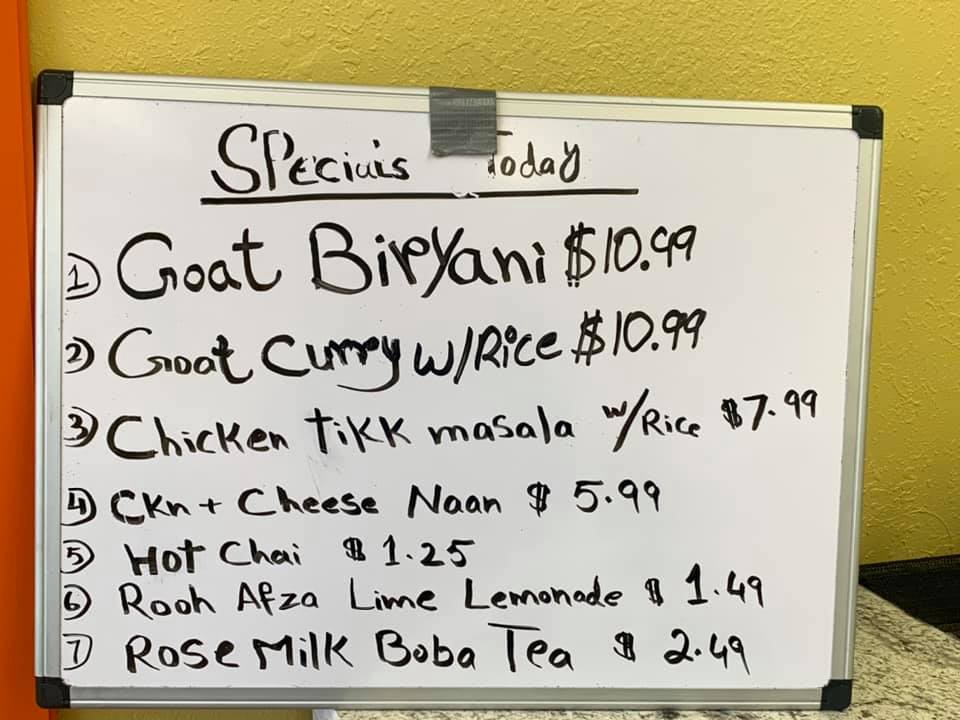 Specials Today
1) Goat Biryani $10.99
2) Goat Curry w/Rice $10.99
3) Chicken Tikk masala w/Rice $7.99
4) Ckn + Cheese Naan $5.99
5) Hot Chai $1.25
6) Rooh Afza Lime Lemonade $1.49
7) Rose Milk Boba Tea $2.49